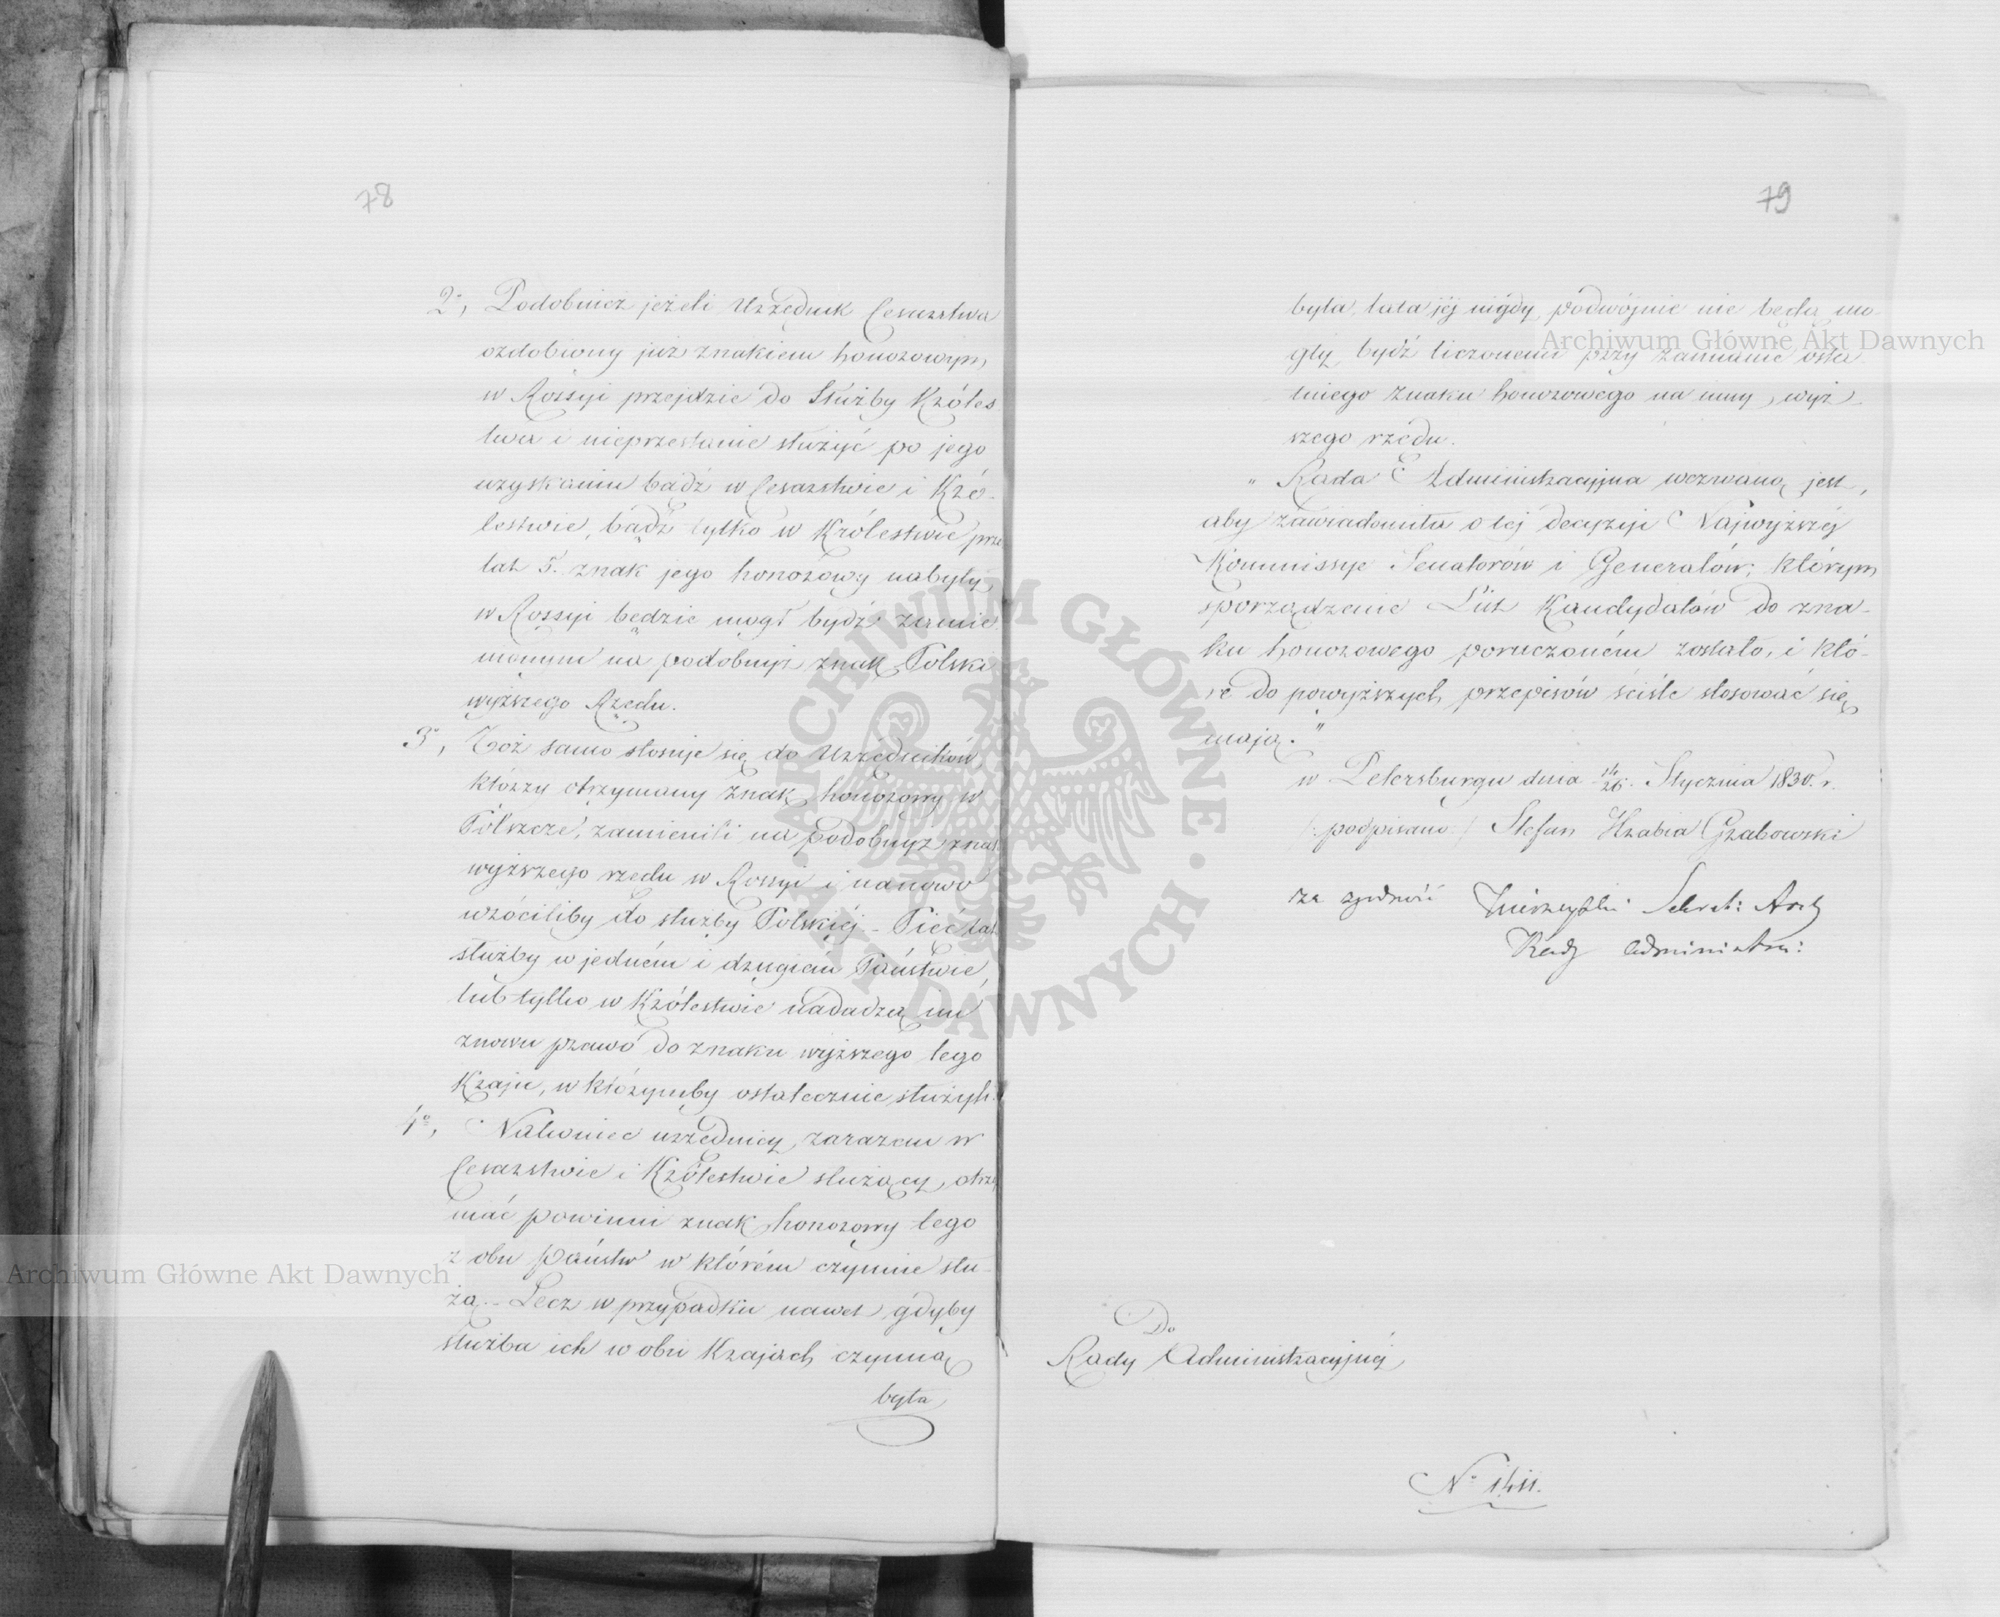 78
2°, Podobnież jeżeli Urzędnik Cesarstwa
ozdobiony już znakiem honorowym
w Rossyi przejdzie do Służby Króles
twa i nieprzestanie służyć po jego
uzyskaniu bądź w Cesarstwie i Kró-
lestwie, bądź tylko w Królestwie prze
lat 5. znak jego honorowy nabyty
w Rossyi będzie mógł bydź zamie
nionym na podobnyż znak Polski
wyższego Rzędu.
3°, Toż samo stosuje się do Urzędników,
którzy otrzymany znak honorowy w
Polszcze, zamienili na podobnyż zna
wyższego rzędu w Rossyi i nanowo
wróciliby do służby Polskiéj – Pięć lat
służby w jedném i drugiem Państwie,
lub tylko w Królestwie nadadzą im
znowu prawo do znaku wyższego tego
Kraju, w którymby ostatecznie służyli.
4°, Nakoniec urzędnicy zarazem w
Cesarstwie i Królestwie służący, otrzy
mać powinni znak honorowy tego
z obu Państw w którém czynnie słu-
żą. – Lecz w przypadku nawet gdyby
służba ich w obu Krajach czynną
była
79
była, lata jéj nigdy podwójnie nie będą mo
gły bydź liczonemi przy zamianie osta
tniego znaku honorowego na inny wyż
szego rzędu.
„ Rada Administracyjna wezwaną jest,
aby zawiadomiła o téj decyzyi Najwyższéj
Kommissye Senatorów i Generałów, którym
sporządzenie List Kandydatów do zna-
ku honorowego poruczoném zostało, i któ-
re do powyższych przepisów ściśle stosować się
mają."
w Petersburgu dnia 14/26. Stycznia 1830. r.
/: podpisano :/ Stefan Hrabia Grabowski
za zgodność Sekret: Arch
Rady Administra:
Do
Rady Administracyjnéj
N° 1411.
Archiwum Główne Akt Dawnych
Archiwum Główne Akt Dawnych
ARCHIWUM GŁÓWNE AKT DAWNYCH